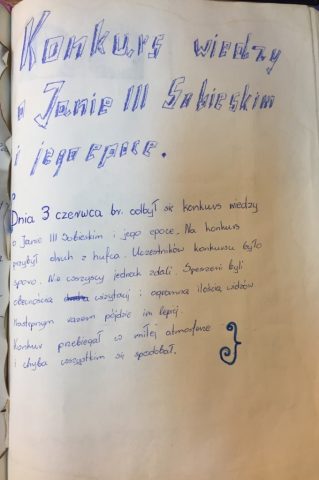 Konkurs wiedzy
o Janie III Sobieskim
i jego epoce.
Dnia 3 czerwca br. odbył się konkurs wiedzy
o Janie III Sobieskim i jego epoce. Na konkurs
przybył druh z hufca. Uczestników konkursu było
sporo. Nie wszyscy jednak zdali. Speszeni byli
obecnością wizytacji i ogromną ilością widzów
Następnym razem pójdzie im lepiej.
Konkurs przebiegał w miłej atmosferze
i chyba wszystkim się spodobał.